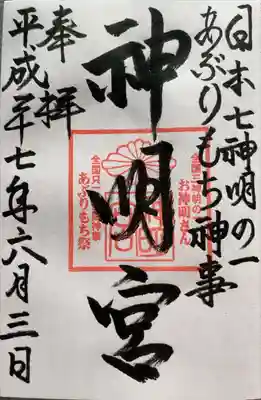 日本七神明の一
あぶりもち神事
神明宮
全国三神明の
お神明さん
あぶりもち祭
奉拝
平成廿七年六月三日